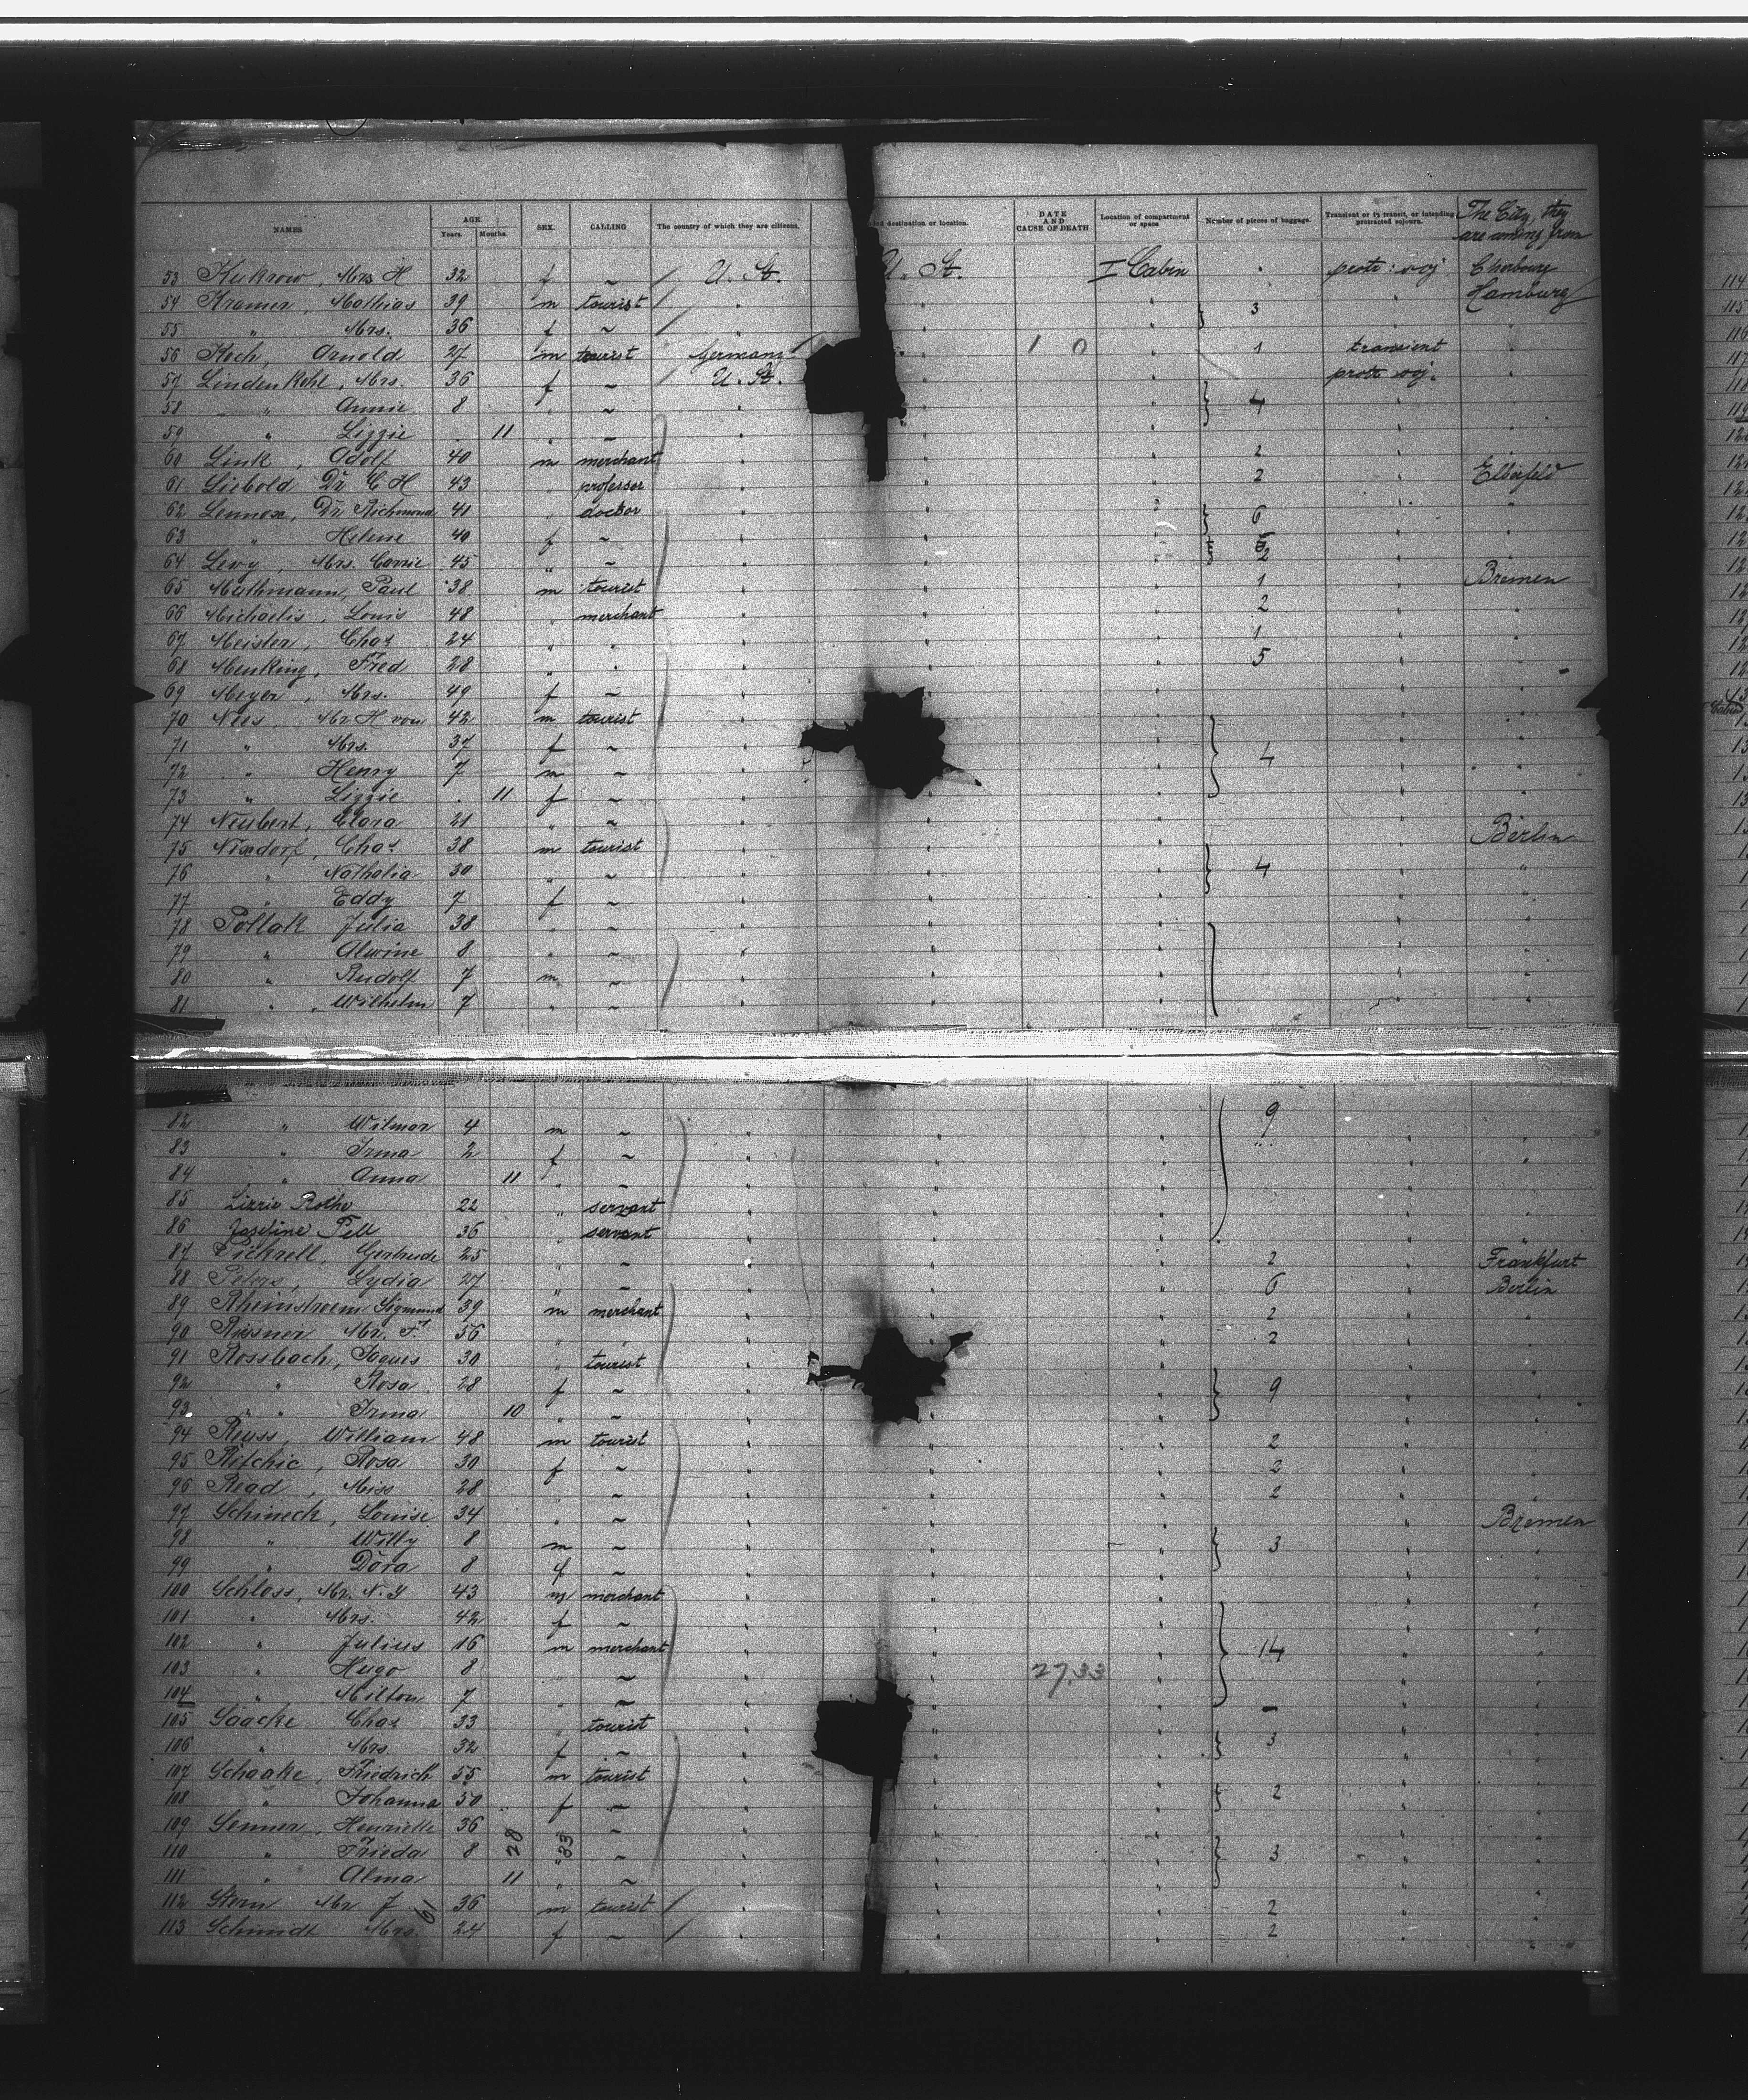 NAMES AGE. Years. Months. SEX. CALLING The country of which they are citizens. destination or location. DATE AND CAUSE OF DEATH Location of compartment or space Number of pieces of baggage. Transient or in transit, or intending protracted sojourn. The City, they are coming from
53 Kukrow, Mrs H 32 f ~ U. St. U. St. I Cabin protr: soj Cherbourg
54 Kramer, Mathias 39 m tourist " " 3 " Hamburg
55 " Mrs. 36 f ~ " " " "
56 Koch, Arnold 27 m tourist Germany 1 0 " 1 transient "
57 Lindenkohl, Mrs. 36 f ~ U. St. " " protr soj. "
58 " Annie 8 " ~ " " 4 " "
59 " Lizzie 11 " ~ " " " "
60 Link, Adolf 40 m merchant " " 2 " "
61 Liebold Dr. C H 43 " professor " " " 2 " Elberfeld
62 Lennox, Dr. Richmond 41 " doctor " " " 6 " "
63 " Helene 40 f ~ " " " " "
64 Levy, Mrs. Carrie 45 " ~ " " " 2 " "
65 Muthmann, Paul 38 m tourist " " " 1 " Bremen
66 Michaelis, Louis 48 " merchant " " " 2 " "
67 Meister, Chas 24 " " " " " 1 " "
68 Menking, Fred 28 " " " " " 5 " "
69 Meyer, Mrs. 49 f ~ " " " "
70 Nies Mr H von 42 m tourist " " " "
71 " Mrs. 37 f ~ " " 4 " "
72 " Henry 7 m ~ " " " "
73 " Lizzie 11 f ~ " " " "
74 Neubert, Clara 21 " ~ " " " "
75 Nixdorf, Chas 38 m tourist " " " " Berlin
76 " Nathalia 30 " ~ " " " 4 " "
77 " Eddy 7 f ~ " " " " "
78 Pollak Julia 38 " ~ " " " " "
79 " Alwine 8 " ~ " " " " "
80 " Rudolf 7 m ~ " " " " "
81 " Wilhelm 7 " ~ " " " " "
82 " Wilmor 4 m ~ " " " 9 " "
83 " Irma 2 f ~ " " " " "
84 " Anna 11 " ~ " " " " "
85 Lizzie Rothe 22 " servant " " " " "
86 Josefine Pell 36 " servant " " " " "
87 Pickrell, Gertrude 25 " ~ " " " 2 " Frankfurt
88 Peters, Lydia 27 " ~ " " " 6 " Berlin
89 Rheinstroem Sigmund 39 m merchant " " " 2 " "
90 Riesner Mr. F. 56 " " " " 2 " "
91 Rossbach, Jaques 30 " tourist " " " "
92 " Rosa 28 f ~ " " 9 " "
93 " Irma 10 " ~ " " " " "
94 Reuss, William 48 m tourist " " " 2 " "
95 Ritchie, Rosa 30 f ~ " " " 2 " "
96 Read, Miss 28 " ~ " " " 2 " "
97 Schineck, Louise 34 " ~ " " " " Bremen
98 " Willy 8 m ~ " " " 3 " "
99 " Dora 8 f ~ " " " " "
100 Schloss, Mr. N. J 43 m merchant " " " " "
101 " Mrs. 42 f ~ " " " " "
102 " Julius 16 m merchant " " " 14 " "
103 " Hugo 8 " ~ " " 27.33 " " "
104 " Milton 7 " ~ " " " "
105 Saacke Chas 33 " tourist " " " – " "
106 " Mrs. 32 f ~ " " " 3 " "
107 Schaake, Friedrich 55 m tourist " " " " "
108 " Johanna 50 f ~ " " 2 " "
109 Senner, Henriette 36 ~ " " " "
110 " Frieda 8 28 83 " ~ " " 3 " "
111 " Alma 11 " ~ " " " "
112 Stern Mr J 61 36 m tourist " " 2 " "
113 Schmidt Mrs. 24 f ~ " " 2 " "
114
115
116
117
118
119